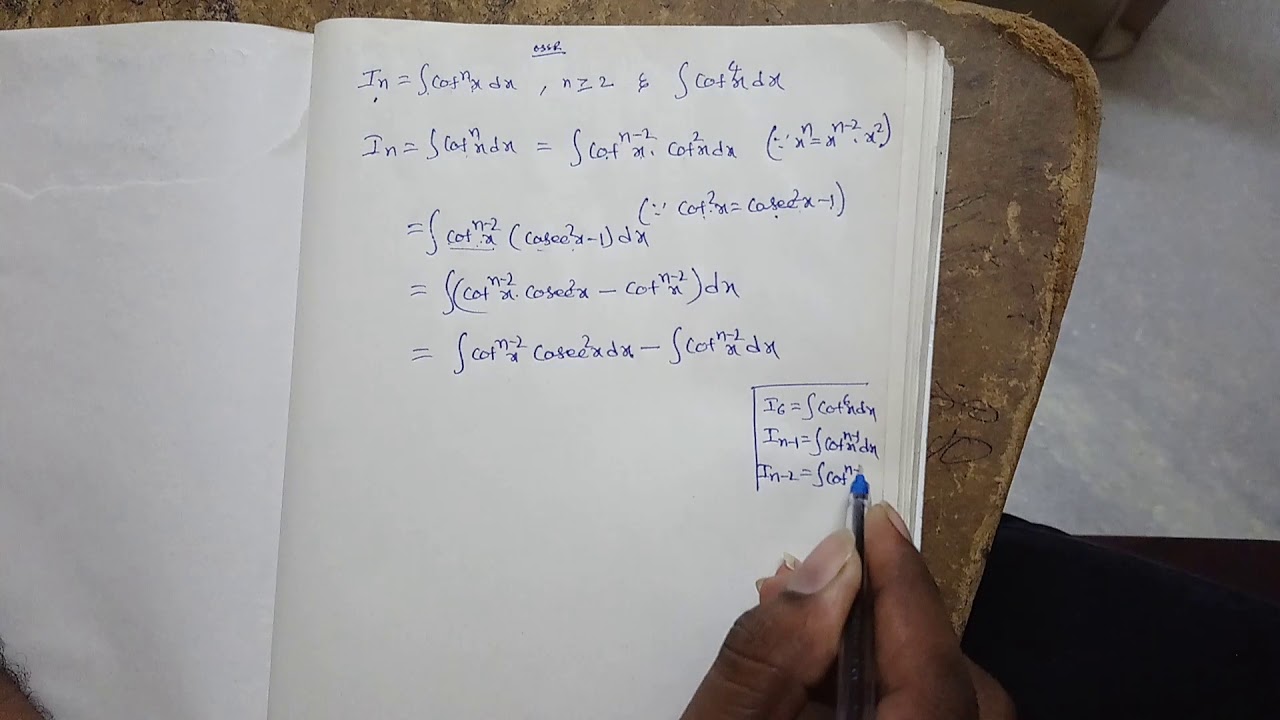 OSSR
Iₙ = ∫cotⁿx dx , n ≥ 2 & ∫cot⁴x dx
Iₙ = ∫cotⁿx dx = ∫cotⁿ⁻²x. cot²x dx (∵ xⁿ = xⁿ⁻². x²)
(∵ cot²x = cosec²x-1)
= ∫cotⁿ⁻²x (cosec²x-1) dx
= ∫(cotⁿ⁻²x. cosec²x - cotⁿ⁻²x) dx
= ∫cotⁿ⁻²x cosec²x dx - ∫cotⁿ⁻²x dx
I₆ = ∫cot⁶x dx
Iₙ₋₁ = ∫cotⁿ⁻¹x dx
Iₙ₋₂ = ∫cotⁿ⁻